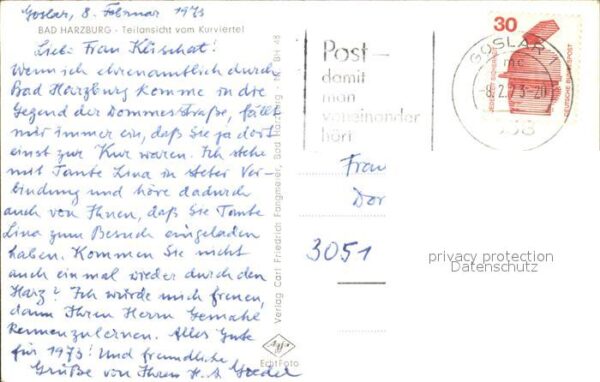 Goslar, 8. Februar 1973
BAD HARZBURG - Teilansicht vom Kurviertel
Liebe Frau Kürschat!
Wenn ich ehrenamtlich durch
Bad Harzburg komme in die
Gegend der Dommesstraße, fällt
mir immer ein, daß Sie ja dort
einst zur Kur waren. Ich stehe
mit Tante Lina in steter Ver-
bindung und höre dadurch
auch von Ihnen, daß Sie Tante
Lina zum Besuch eingeladen
haben. Kommen Sie nicht
auch einmal wieder durch den
Harz? Ich würde mich freuen,
dann Ihren Herrn Gemahl
kennenzulernen. Alles Gute
für 1973! Und freundliche
Grüße von Ihren H. A. Goedel
Verlag Carl Friedrich Fangmeier, Bad Harzburg - Nr. BH 48
EchtFoto
Post-
damit
man
voneinander
hört
GOSLAR 1
mc
-8.2.73-20
338
30
DEUTSCHE BUNDESPOST
Frau
Dor
3051
privacy protection
Datenschutz